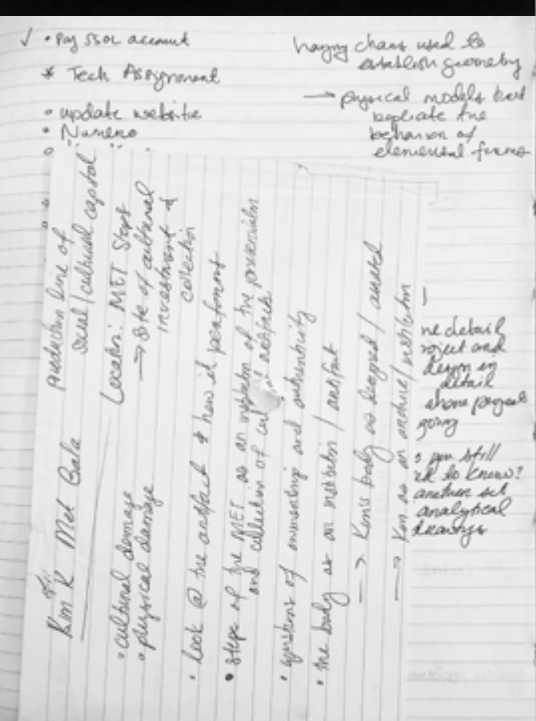 ✓ • Pay SSOL account
* Tech Assignment
• update website
• Numero
hanging chains used to
establish geometry
→ physical models that
replicate the
behavior of
elemental forms
Kim K Met Gala
production line of
social/cultural capital
• cultural damage
• physical damage
Location: MET Steps
→ site of cultural
investment &
collection
• look @ the artifact & how it performs
• steps of the MET as an institution of the
and collection of artifacts
• questions of ownership and authenticity
• the body as an institution / artifact
→ Kim's body as draped /
→ Kim as an archive/institution
ne detail
roject and
design in
detail
above project
going
s you still
to know?
another set
analytical
drawings